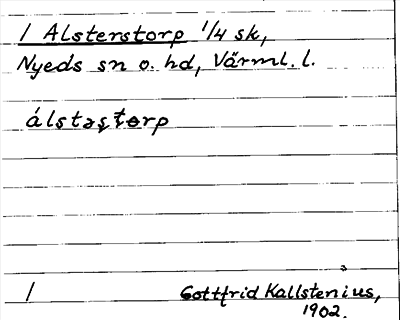 / Alsterstorp 1/4 sk,
Nyeds sn o. hd, Värml. l.
álstəʂtɵrp
/ Gottfrid Kallstenius,
1902.